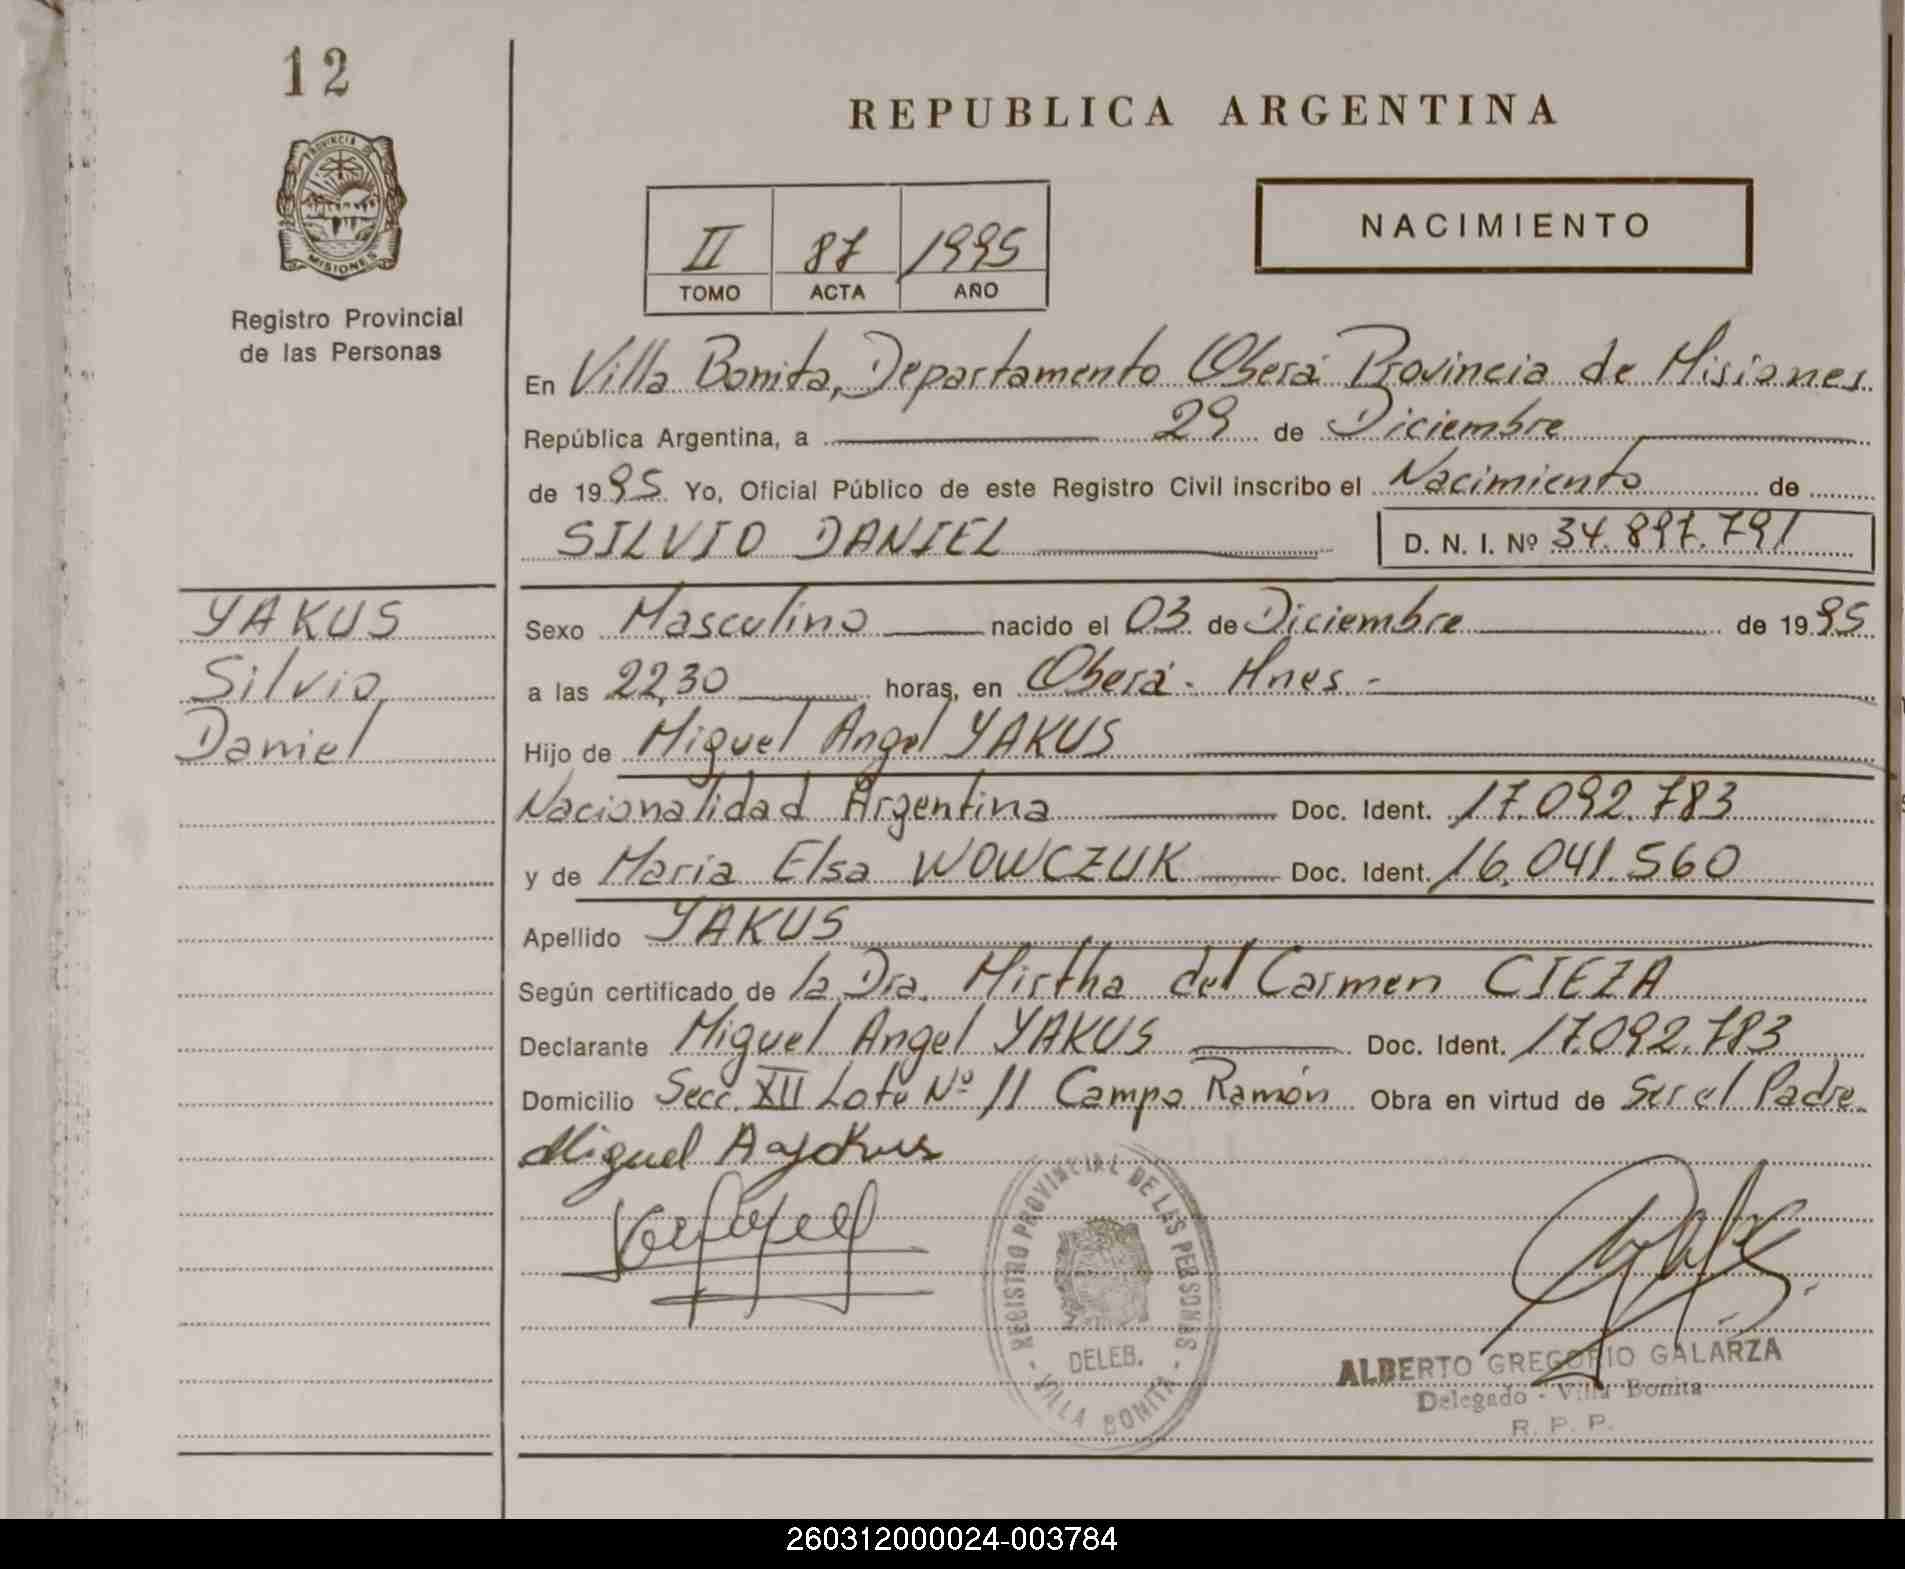 12
PROVINCIA DE
MISIONES
Registro Provincial
de las Personas
REPUBLICA ARGENTINA
NACIMIENTO
II 87 1995
TOMO ACTA AÑO
En Villa Bonita, Departamento Oberá Provincia de Misiones
República Argentina, a 29 de Diciembre
de 1995 Yo, Oficial Público de este Registro Civil inscribo el Nacimiento de
SILVIO DANIEL D. N. I. Nº 34.897.791
YAKUS
Silvio
Daniel
Sexo Masculino nacido el 03 de Diciembre de 1995
a las 22,30 horas, en Oberá - Mnes -
Hijo de Miguel Angel YAKUS
Nacionalidad Argentina Doc. Ident. 17.092.783
y de Maria Elsa WOWCZUK Doc. Ident. 16.041.560
Apellido YAKUS
Según certificado de la Dra. Mirtha del Carmen CIEZA
Declarante Miguel Angel YAKUS Doc. Ident. 17.092.783
Domicilio Secc. XII Lote Nº 11 Campo Ramón Obra en virtud de Ser el Padre.
Miguel A Yakus
REGISTRO PROVINCIAL DE LAS PERSONAS
DELEB.
- VILLA BONITA -
ALBERTO GREGORIO GALARZA
Delegado - Villa Bonita
R. P. P.
260312000024-003784